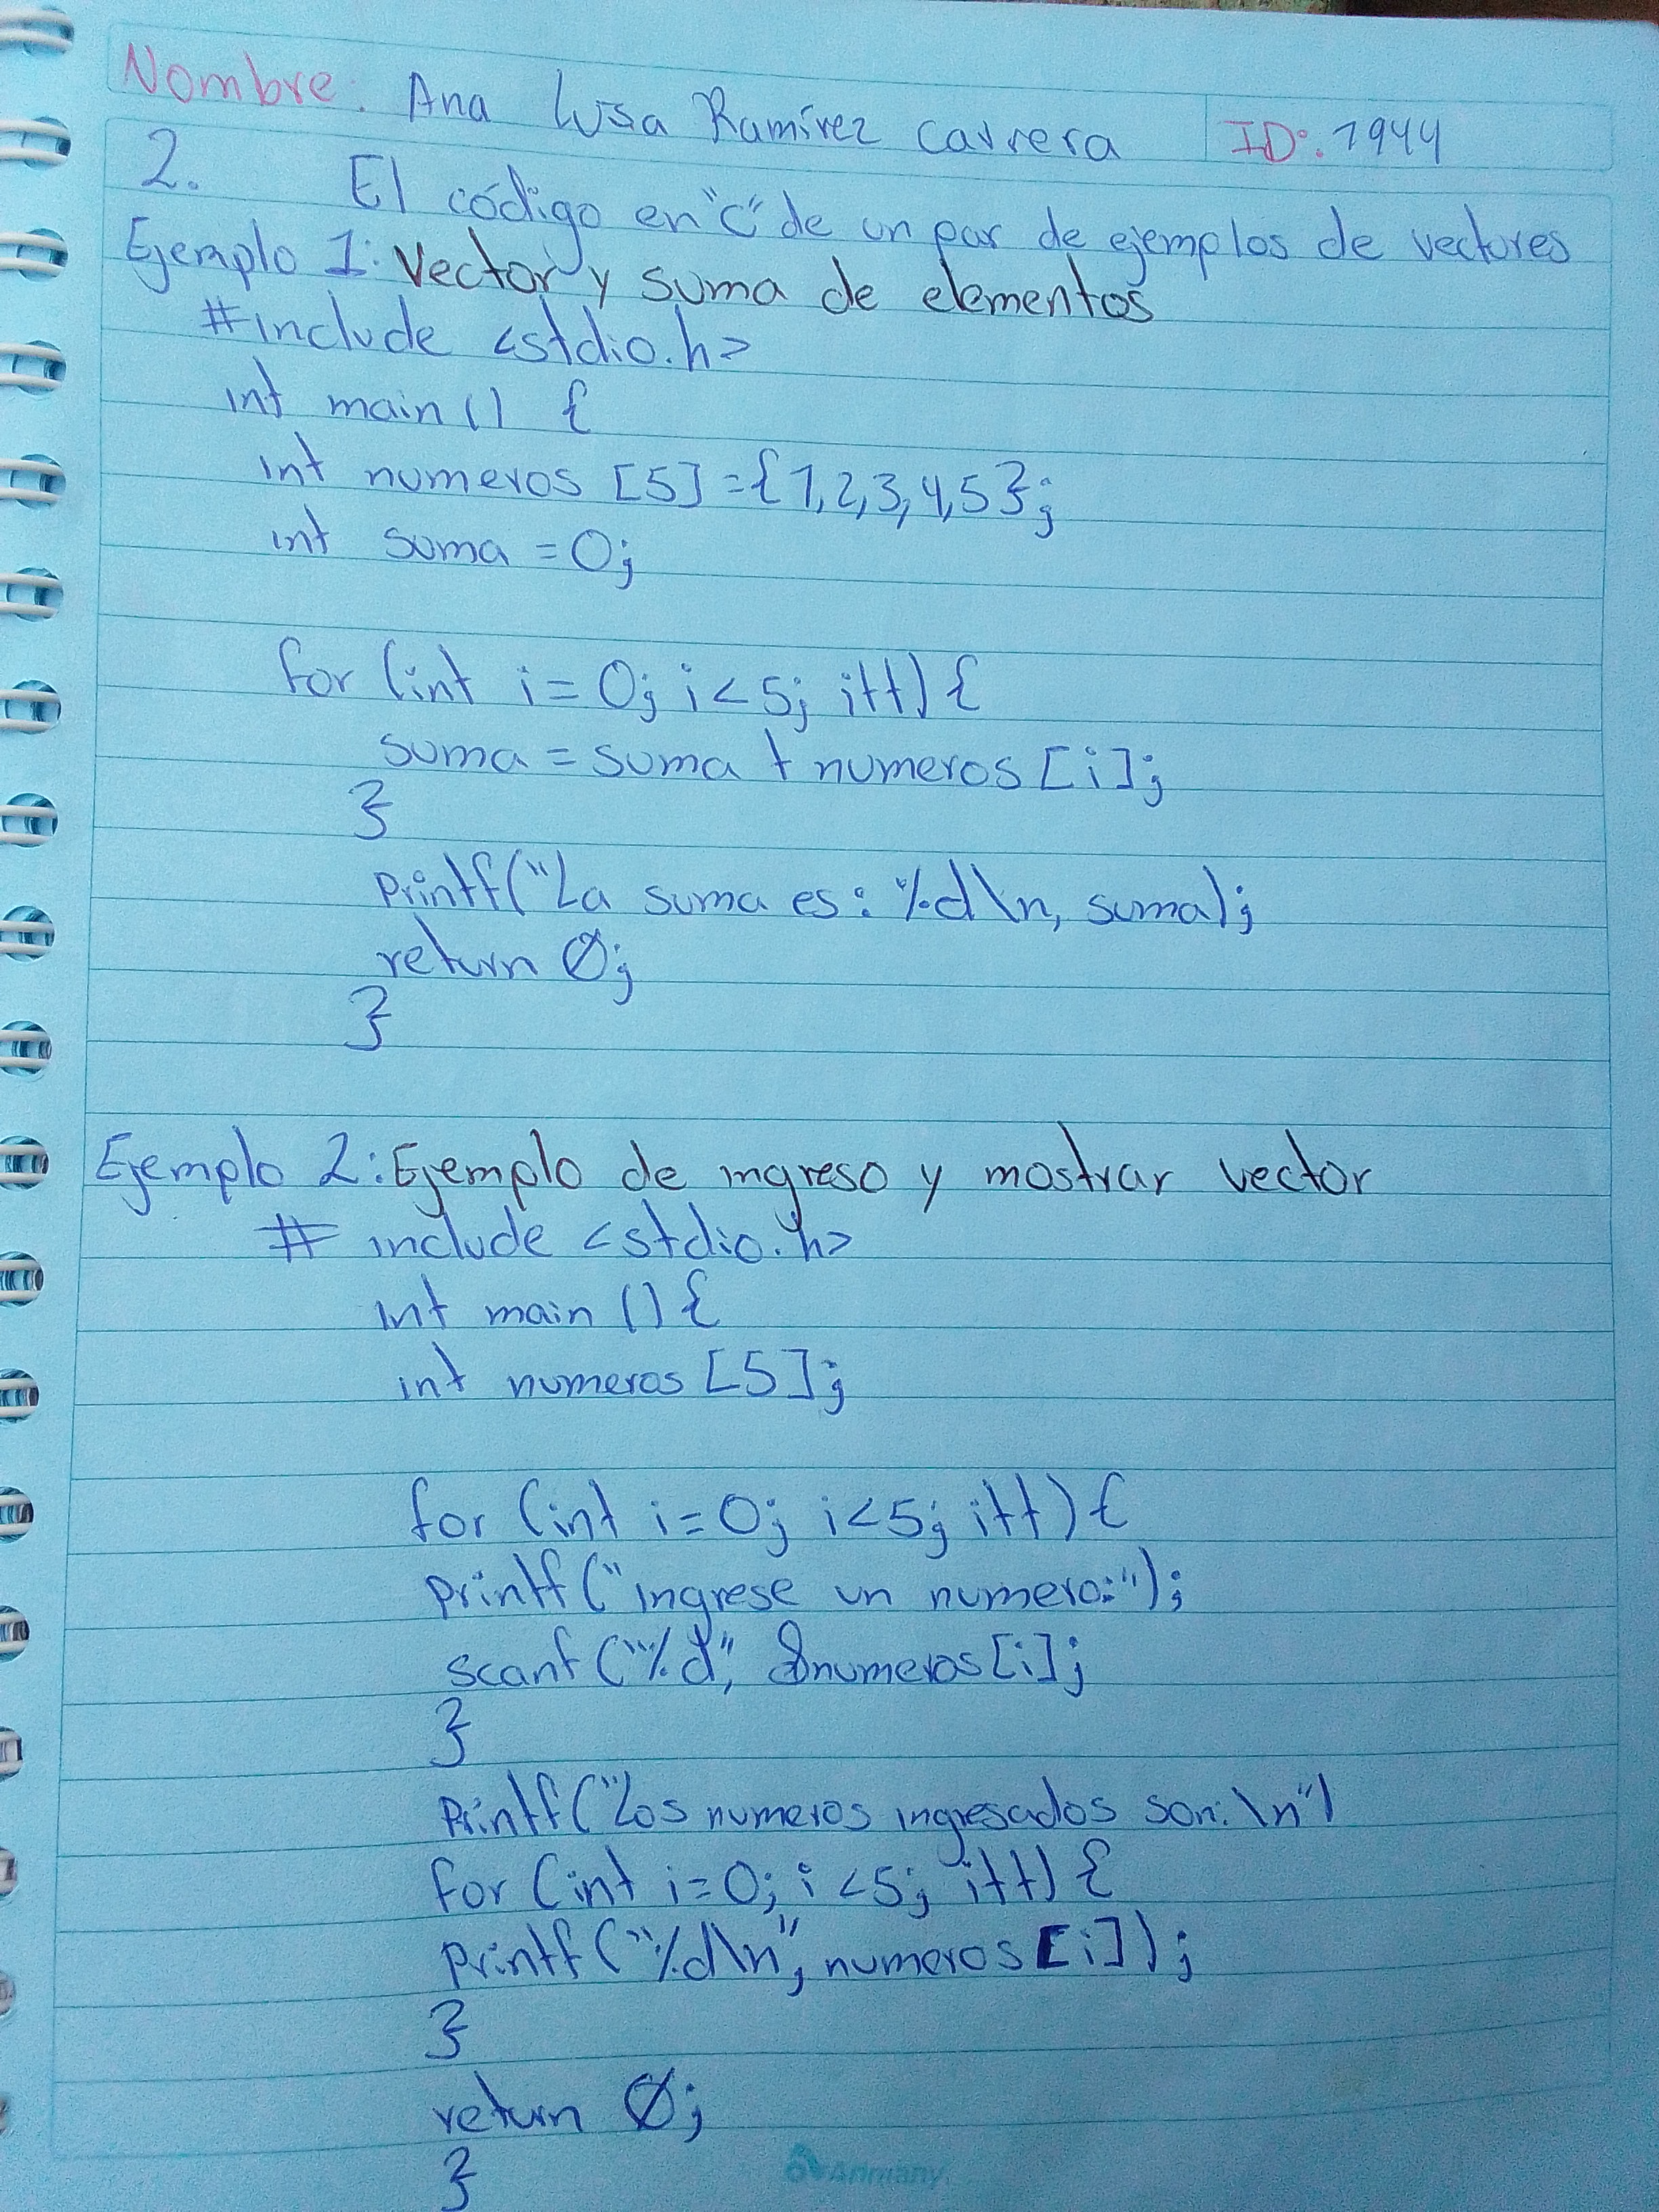 Nombre: Ana Luisa Ramírez Carrera ID: 1944
2. El código en "C" de un par de ejemplos de vectores
Ejemplo 1: Vector y suma de elementos
#include <stdio.h>
int main () {
int numeros [5] = {1,2,3,4,5};
int suma = 0;
for (int i = 0; i < 5; i++) {
suma = suma + numeros [i];
}
printf("La suma es: %d\n, suma);
return 0;
}
Ejemplo 2: Ejemplo de ingreso y mostrar vector
# include <stdio.h>
int main () {
int numeros [5];
for (int i=0; i<5; i++) {
printf("ingrese un numero:");
scanf ("%d", &numeros [i];
}
Printf("Los numeros ingresados son: \n")
for (int i=0; i <5; i++) {
printf ("%d\n", numeros [i]);
}
return 0;
}
Anmany